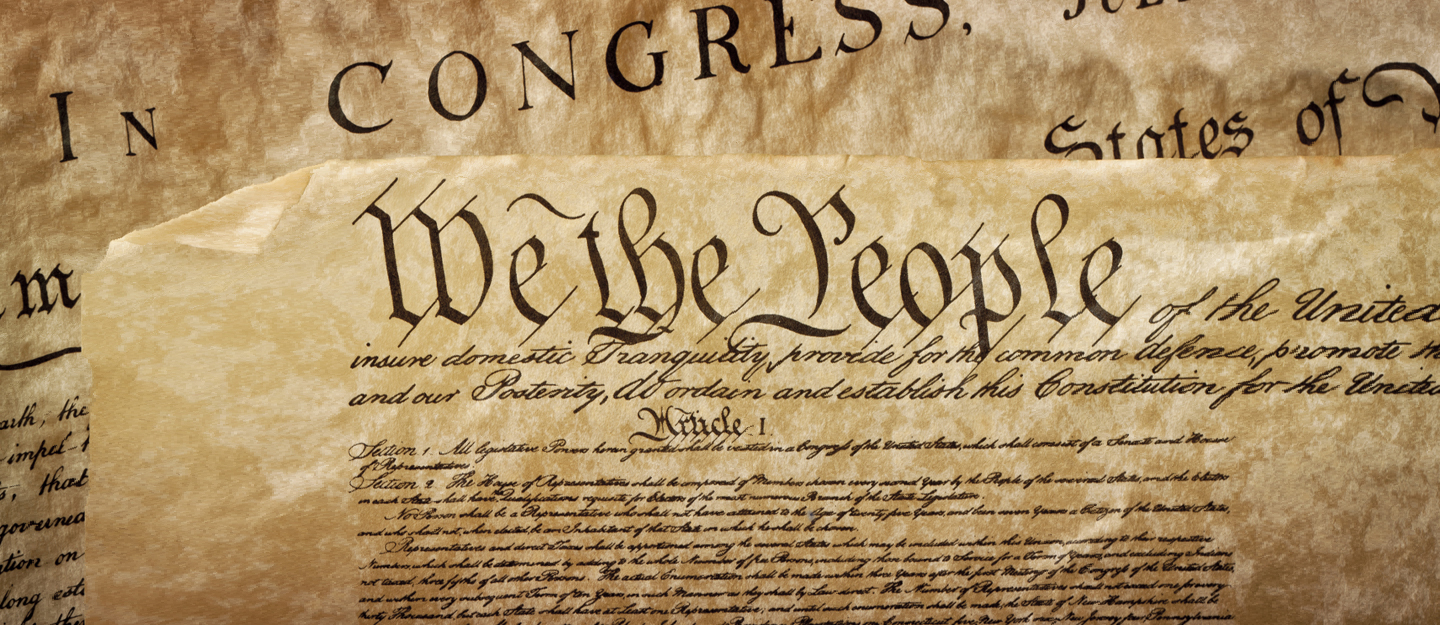 IN CONGRESS, JUL
States of
We the People of the United
insure domestic Tranquility, provide for the common defence, promote th
and our Posterity, do ordain and establish this Constitution for the United
Article I.
Section 1. All legislative Powers herein granted shall be vested in a Congress of the United States, which shall consist of a Senate and House
of Representatives.
Section 2. The House of Representatives shall be composed of Members chosen every second Year by the People of the several States, and the Electors
in each State shall have Qualifications requisite for Electors of the most numerous Branch of the State Legislature.
No Person shall be a Representative who shall not have attained to the Age of twenty five Years, and been seven Years a Citizen of the United States,
and who shall not, when elected, be an Inhabitant of that State in which he shall be chosen.
Representatives and direct Taxes shall be apportioned among the several States which may be included within this Union, according to their respective
Numbers, which shall be determined by adding to the whole Number of free Persons, including those bound to Service for a Term of Years, and excluding Indians
not taxed, three fifths of all other Persons. The actual Enumeration shall be made within three Years after the first Meeting of the Congress of the United States,
and within every subsequent Term of ten Years, in such Manner as they shall by Law direct. The Number of Representatives shall not exceed one for every
thirty Thousand, but each State shall have at Least one Representative; and until such enumeration shall be made, the State of New Hampshire shall be
m
arth, the
impel t
s, that
governed
tion on
long est